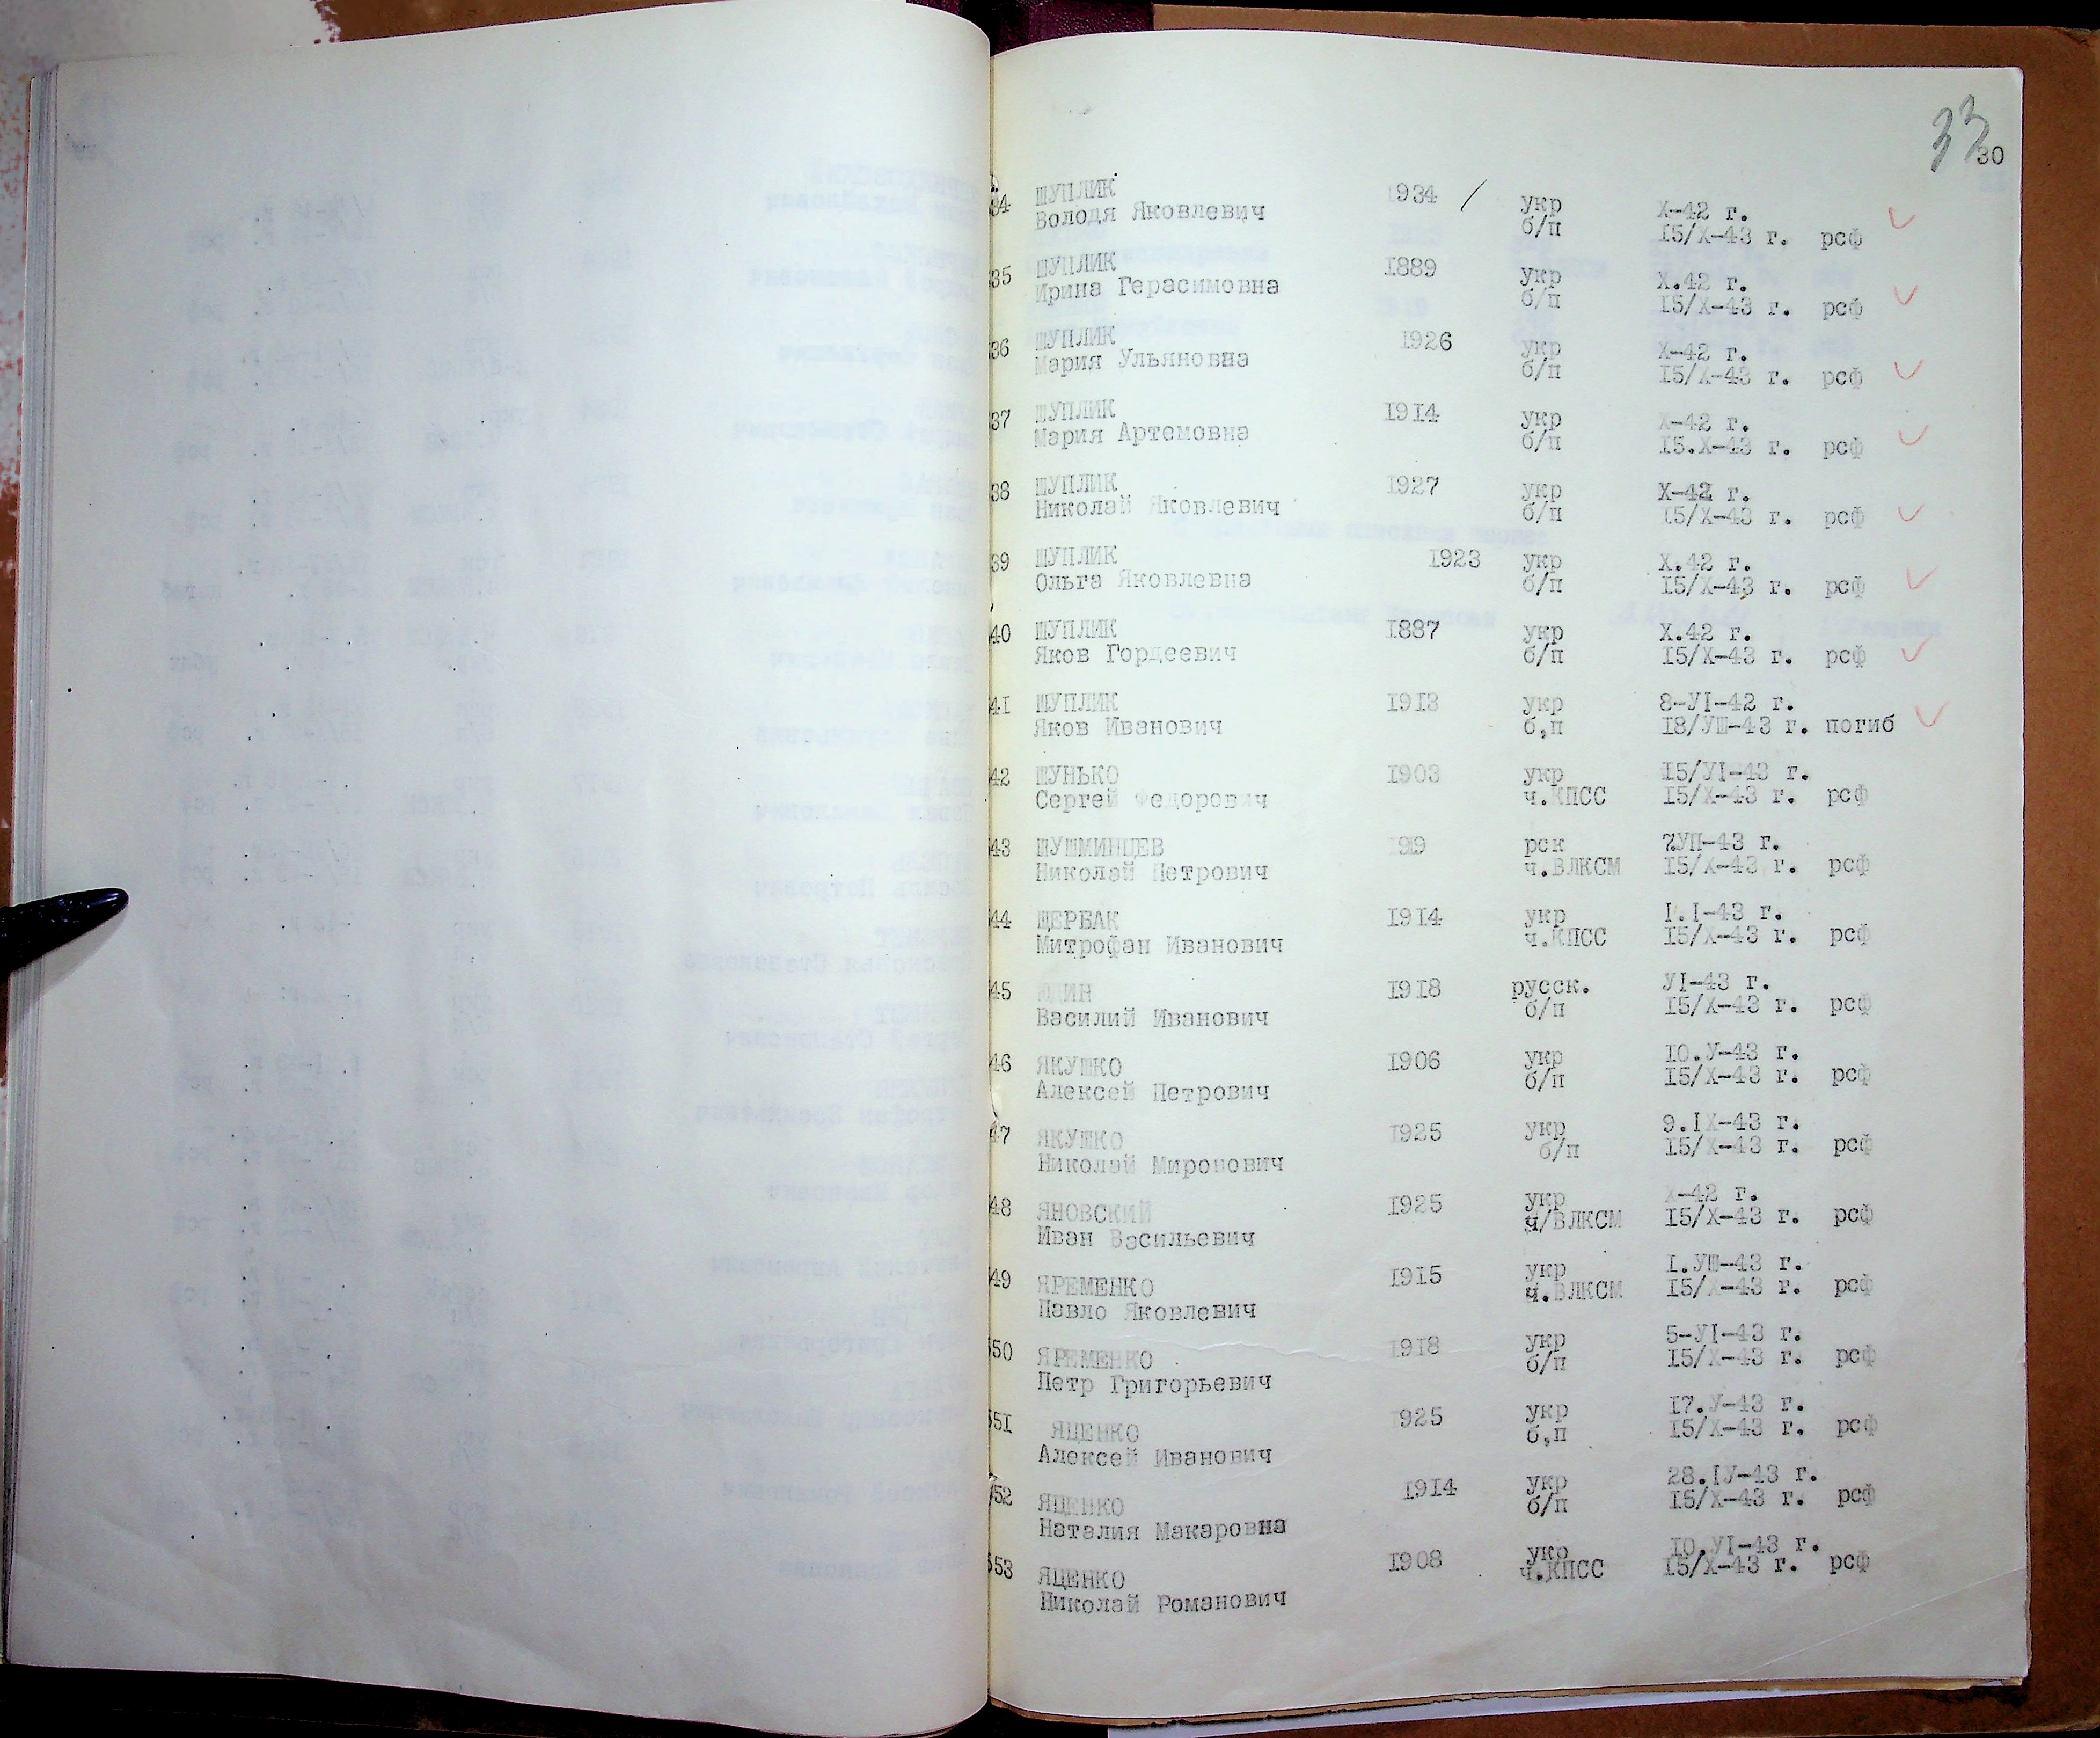 33
30
34 ШУПЛИК 1934 / укр Х-42 г.
Володя Яковлевич б/п 15/Х-43 г. рсф
35 ШУПЛИК 1889 укр Х.42 г.
Ирина Герасимовна б/п 15/Х-43 г. рсф
36 ШУПЛИК 1926 укр Х-42 г.
Мария Ульяновна б/п 15/Х-43 г. рсф
37 ШУПЛИК 1914 укр Х-42 г.
Мария Артемовна б/п 15.Х-43 г. рсф
38 ШУПЛИК 1927 укр Х-42 г.
Николай Яковлевич б/п 15/Х-43 г. рсф
39 ШУПЛИК 1923 укр Х.42 г.
Ольга Яковлевна б/п 15/Х-43 г. рсф
40 ШУПЛИК 1887 укр Х.42 г.
Яков Гордеевич б/п 15/Х-43 г. рсф
41 ШУПЛИК 1913 укр 8-УІ-42 г.
Яков Иванович б,п 18/УШ-43 г. погиб
42 ШУНЬКО 1903 укр 15/УІ-43 г.
Сергей Федорович ч.КПСС 15/Х-43 г. рсф
43 ШУШМИНЦЕВ 1919 рск 7УП-43 г.
Николай Петрович ч.ВЛКСМ 15/Х-43 г. рсф
44 ЩЕРБАК 1914 укр І.І-43 г.
Митрофан Иванович ч.КПСС 15/Х-43 г. рсф
45 ЮДИН 1918 русск. УІ-43 г.
Василий Иванович б/п 15/Х-43 г. рсф
46 ЯКУШКО 1906 укр 10.У-43 г.
Алексей Петрович б/п 15/Х-43 г. рсф
47 ЯКУШКО 1925 укр 9.ІХ-43 г.
Николай Миронович б/п 15/Х-43 г. рсф
48 ЯНОВСКИЙ 1925 укр Х-42 г.
Иван Васильевич ч/ВЛКСМ 15/Х-43 г. рсф
49 ЯРЕМЕНКО 1915 укр І.УШ-43 г.
Павло Яковлевич ч.ВЛКСМ 15/Х-43 г. рсф
50 ЯРЕМЕНКО 1918 укр 5-УІ-43 г.
Петр Григорьевич б/п 15/Х-43 г. рсф
551 ЯЦЕНКО 1925 укр 17.У-43 г.
Алексей Иванович б,п 15/Х-43 г. рсф
552 ЯЦЕНКО 1914 укр 28.ІУ-43 г.
Наталия Макаровна б/п 15/Х-43 г. рсф
553 ЯЦЕНКО 1908 укр 10.УІ-43 г.
Николай Романович ч.КПСС 15/Х-43 г. рсф